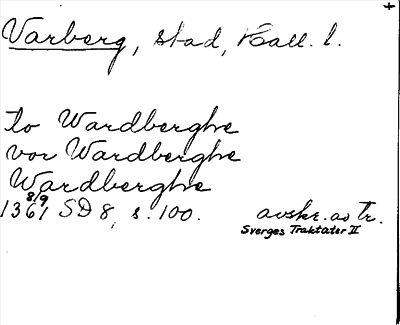 Varberg, stad, Hall. l.
to Wardberghe
vor Wardberghe
Wardberghe
8/9
1361 SD 8, s. 100. avskr. av Tr.
Sverges Traktater II